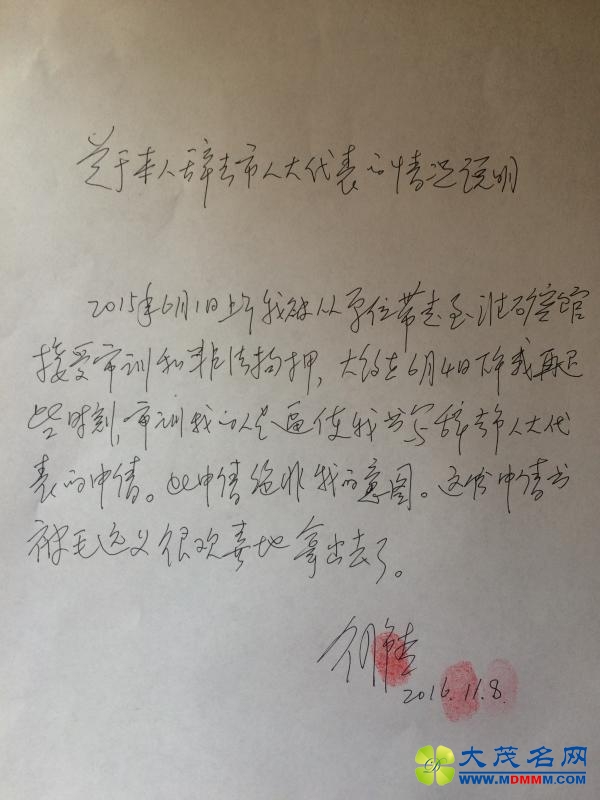 关于本人辞去市人大代表的情况说明
2015年6月1日上午我被从单位带走至 宾馆
接受审训和非法拘押,大约在6月4日下午或再迟
些时刻,审训我的人员逼使我书写辞去市人大代
表的申请。此申请绝非我的意图。这份申请书
被毛 义很欢喜地拿出去了。
2016.11.8.
大茂名网
WWW.MDMMM.COM